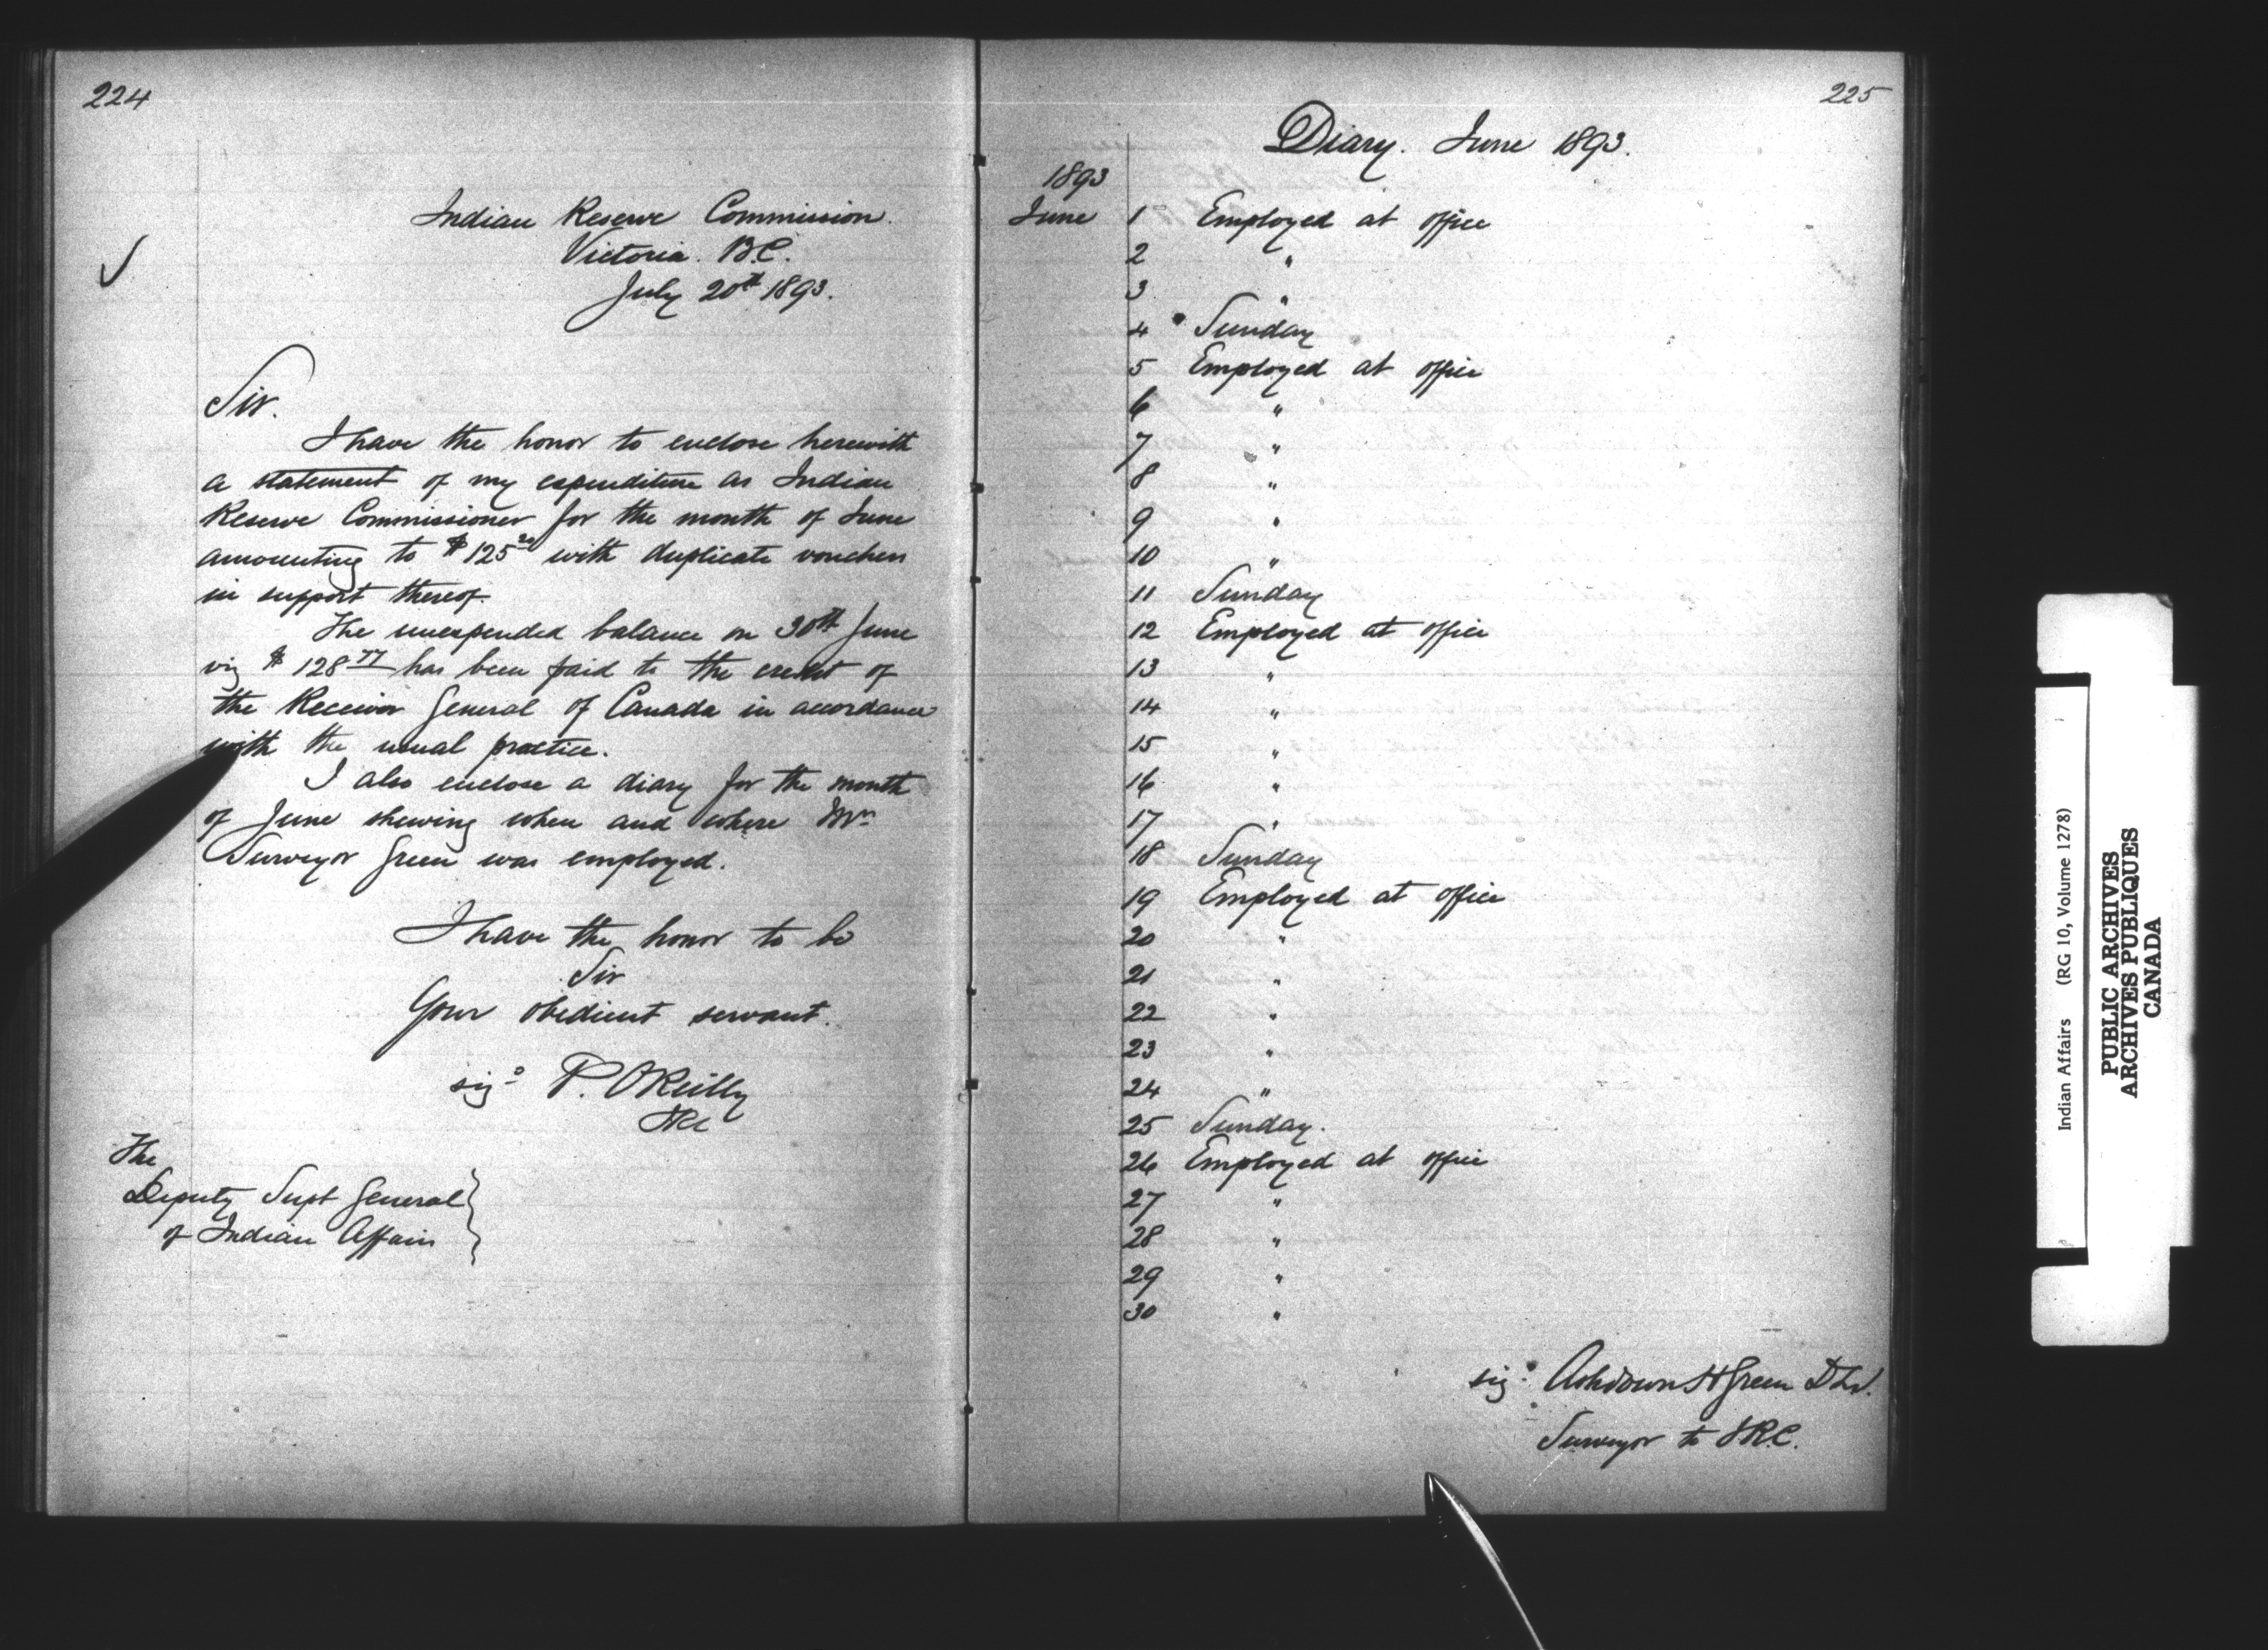 224
Indian Reserve Commission.
Victoria. B.C.
July 20th 1893.
Sir.
I have the honor to enclose herewith
a statement of my expenditure as Indian
Reserve Commissioner for the month of June
amounting to $125 20 with duplicate vouchers
in support thereof.
The unexpended balance on 30th June
viz $ 128 77 has been paid to the credit of
the Receiver General of Canada in accordance
with the usual practice.
I also enclose a diary for the month
of June shewing when and where Mr
Surveyor Green was employed.
I have the honor to be
Sir
Your obedient servant.
sigd P. O'Reilly
IRC
The
Deputy Supt General
of Indian Affairs
225
Diary. June 1893.
1893
June 1 Employed at office
2 "
3 "
4 Sunday
5 Employed at office
6 "
7 "
8 "
9 "
10 "
11 Sunday
12 Employed at office
13 "
14 "
15 "
16 "
17 "
18 Sunday
19 Employed at office
20 "
21 "
22 "
23 "
24 "
25 Sunday.
26 Employed at office
27 "
28 "
29 "
30 "
sigd Ashdown H Green DLS.
Surveyor to IRC.
Indian Affairs (RG 10, Volume 1278)
PUBLIC ARCHIVES
ARCHIVES PUBLIQUES
CANADA